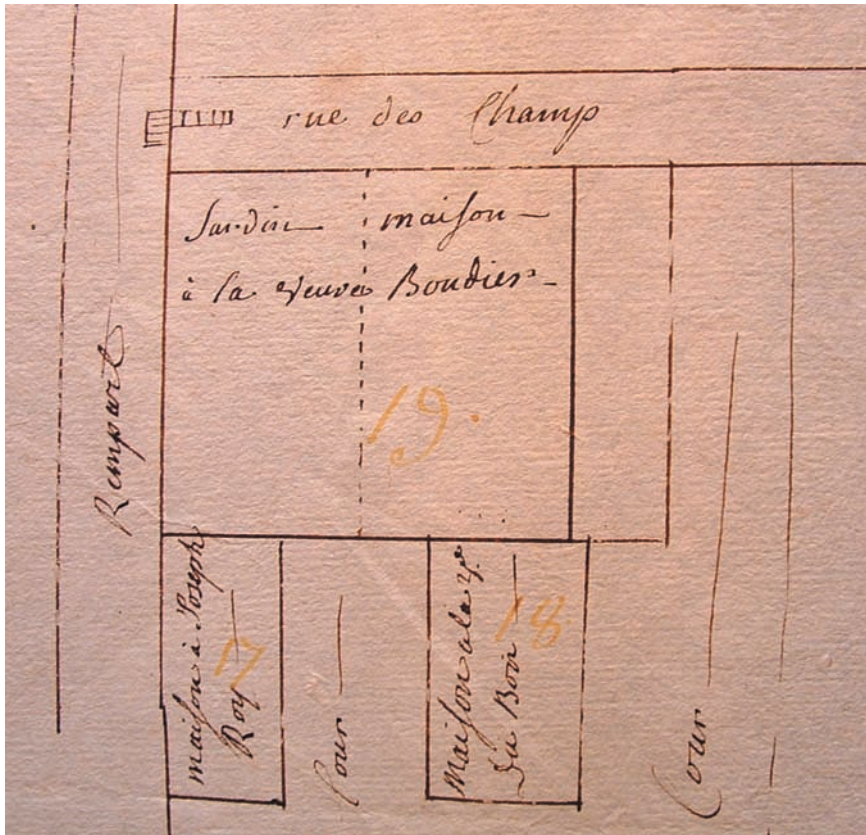 rue des Champ
Jardin maison
à la veuve Boudier
19.
Rempart
maison à Joseph
Roy
17
Cour
Maison a la Ve
Du Bois
18
Cour